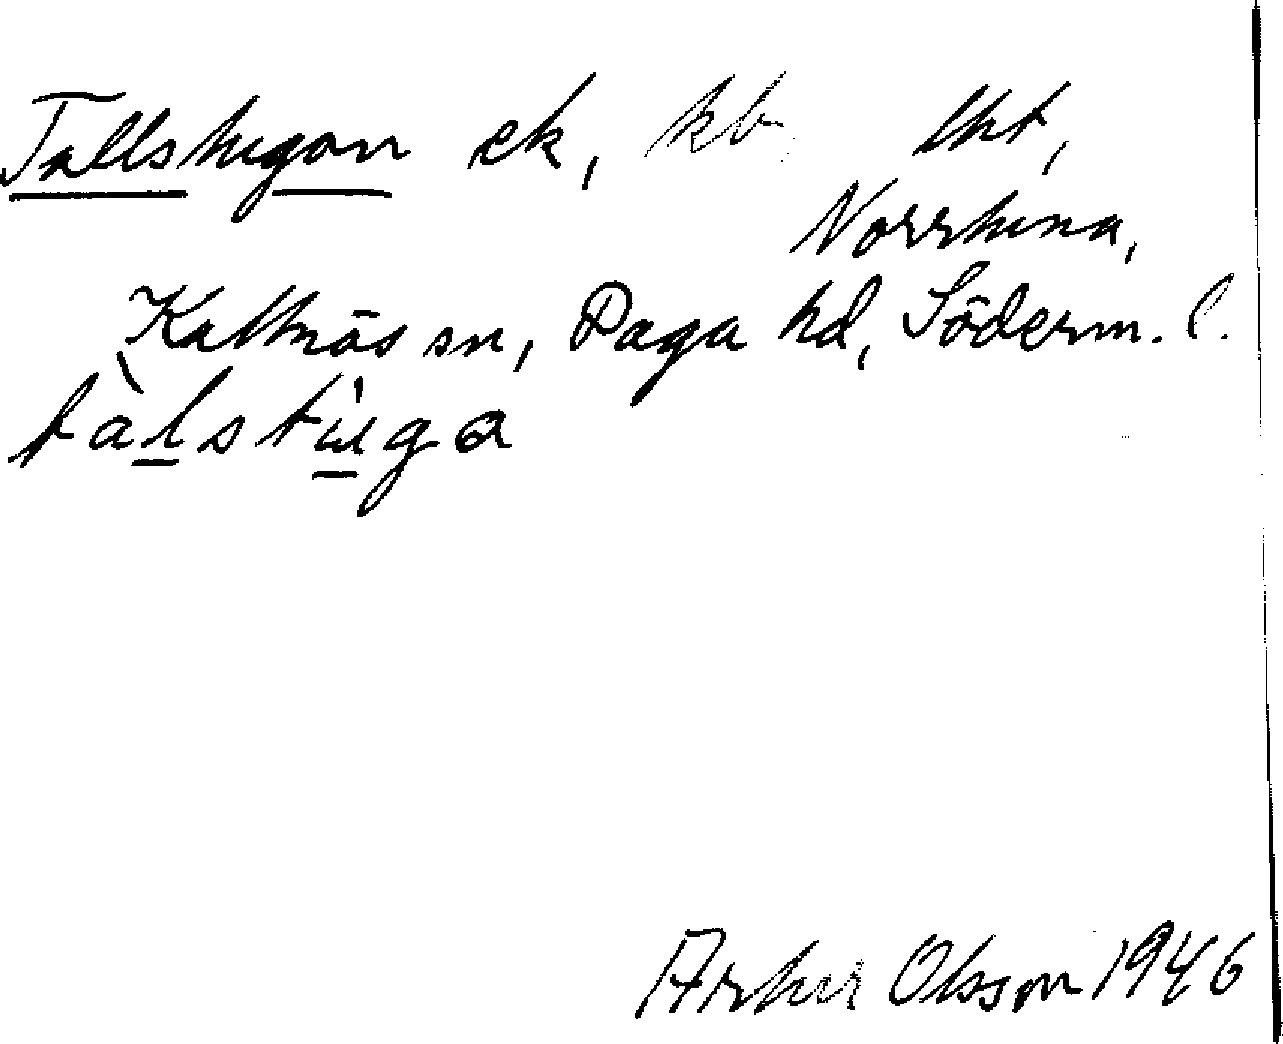 Tallstugan ek, kb. lht,
Norrtuna,
Kattnäs sn, Daga hd, Söderm. l.
tàlstùga
Arthur Olsson 1946